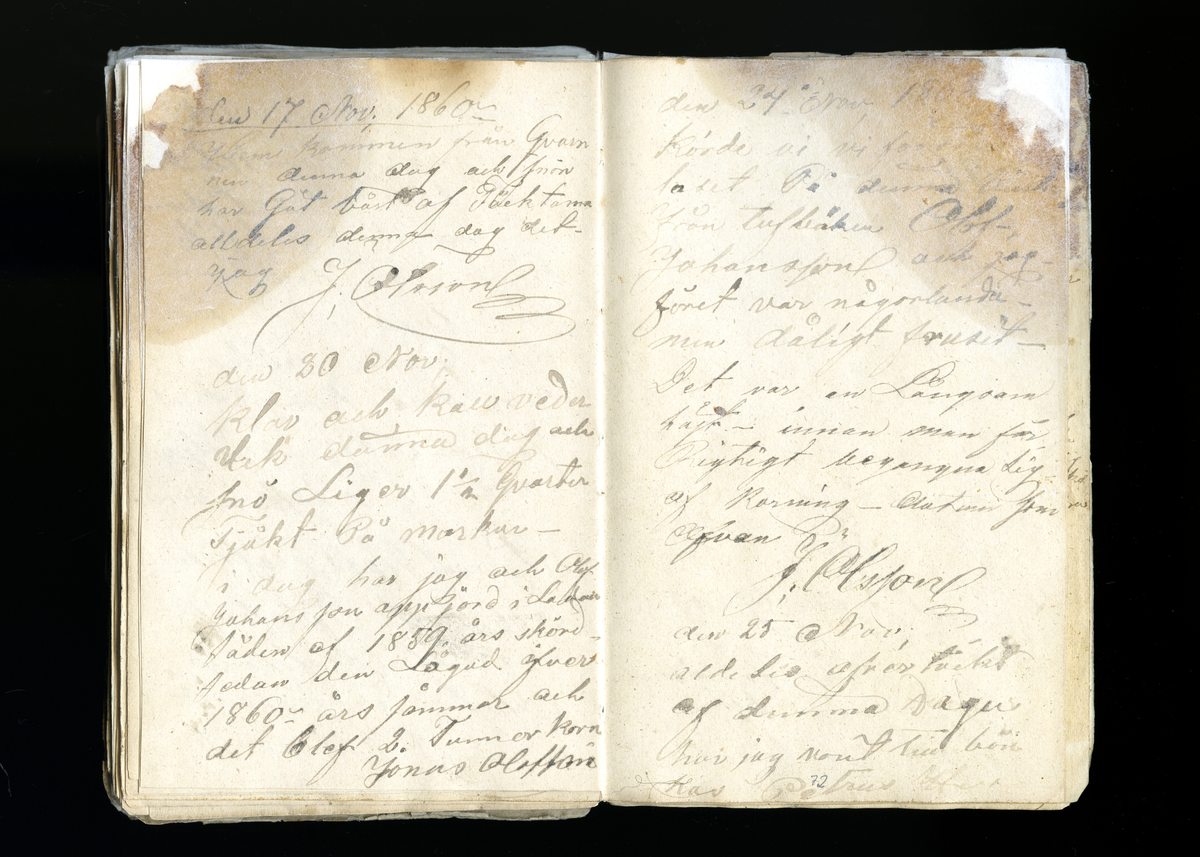 den 17 Nov. 1860
kommen från Qvarn
nen denna dag och snön
har Gåt bårt af Täckt
alldeles denna dag det-
Jag J, Olsson
den 20 Nov,
klar och kall veder
lek denna dag och
snö Liger 1 1/2 Qvarter
Tjåkt På markur -
i dag har jag och Olof
Johansson uppjörd i Ladan
säden af 1859 års skörd -
sedan den Lågad öfver
1860 års sommer och
det blef 2 Tunnor korn
Jonas Olofsson
den 24 Nov, 186
Körde vi
laset På denna
från Olof-
Johansson och jag-
föret var någorlunda -
men dåligt fruset -
Det var en Långsam
höst - innan man får
Rigtigt begangna sig
af körning - datum som
ofvan
J, Olsson
den 25 Nov,
aldeles snön täckt
af denna Dagen
har jag vout till bön
hos Petrus
72